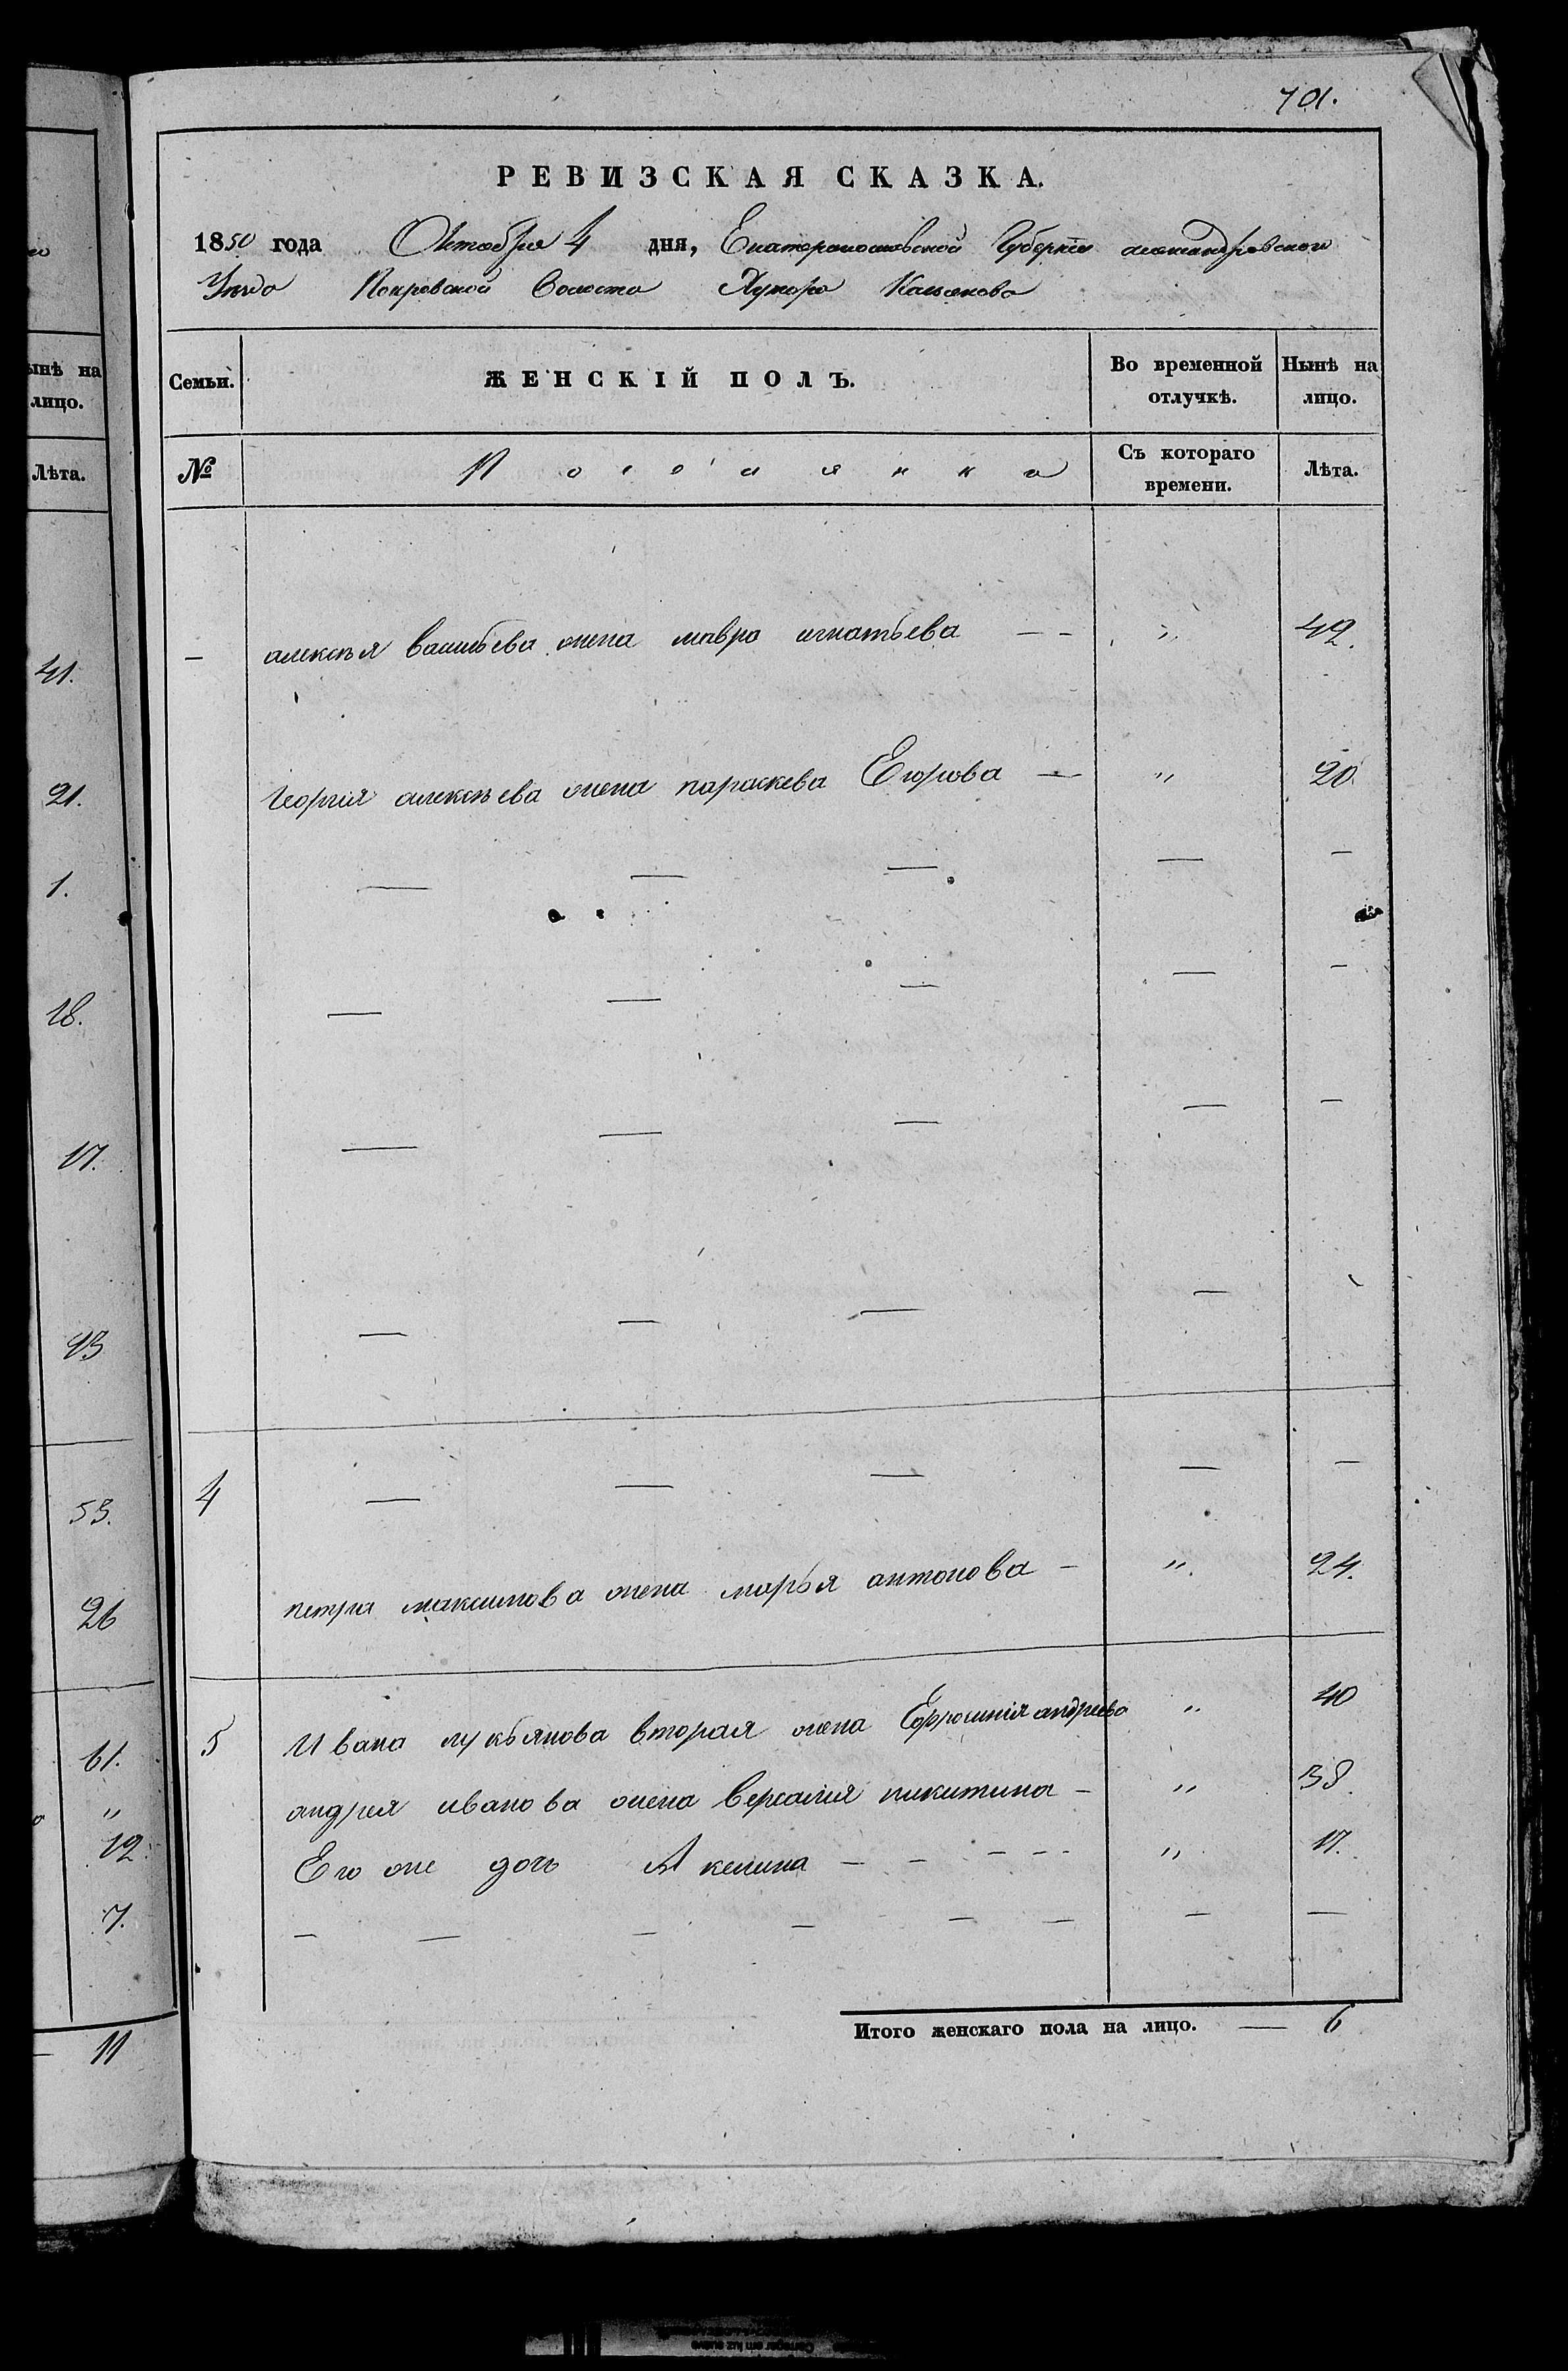 701.
РЕВИЗСКАЯ СКАЗКА.
1850 года Октября 4 дня, Екатеринославской Губерніи александровскаго
Уѣзда Покровской Волости Хутора
Семьи. ЖЕНСКІЙ ПОЛЪ. Во временной отлучкѣ. Нынѣ на лицо.
№ Поселянка Съ котораго времени. Лѣта.
— алексѣя васильева жена мавра игнатьева — — „ 42.
Георгія алексѣева жена параскева Егорова — „ 20
— — — — —
— — — — —
— — — — —
— — — —
4 — — — — —
петра максимова жена марья антонова — „ 24.
5 Ивана лукьянова вторая жена Ефросинія андреева „ 40
андрея иванова жена никитина — „ 38.
Его же дочь Акелина — — — — — „ 17.
— — — — — — — —
Итого женскаго пола на лицо. — 6
ынѣ на
лицо.
Лѣта.
41.
21.
1.
18.
17.
13
53.
26
61.
„
12.
7.
— 11